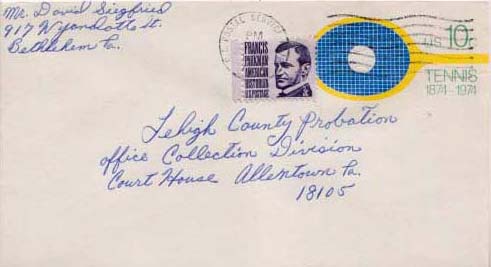 Mr. David Siegfried
917 Wyandotte St.
Bethlehem Pa.
POSTAL SERVICE
PM
FRANCIS
PARKMAN
AMERICAN
HISTORIAN
US POSTAGE
US 10c
TENNIS
1874-1974
Lehigh County Probation
office Collection Division
Court House Allentown Pa.
18105